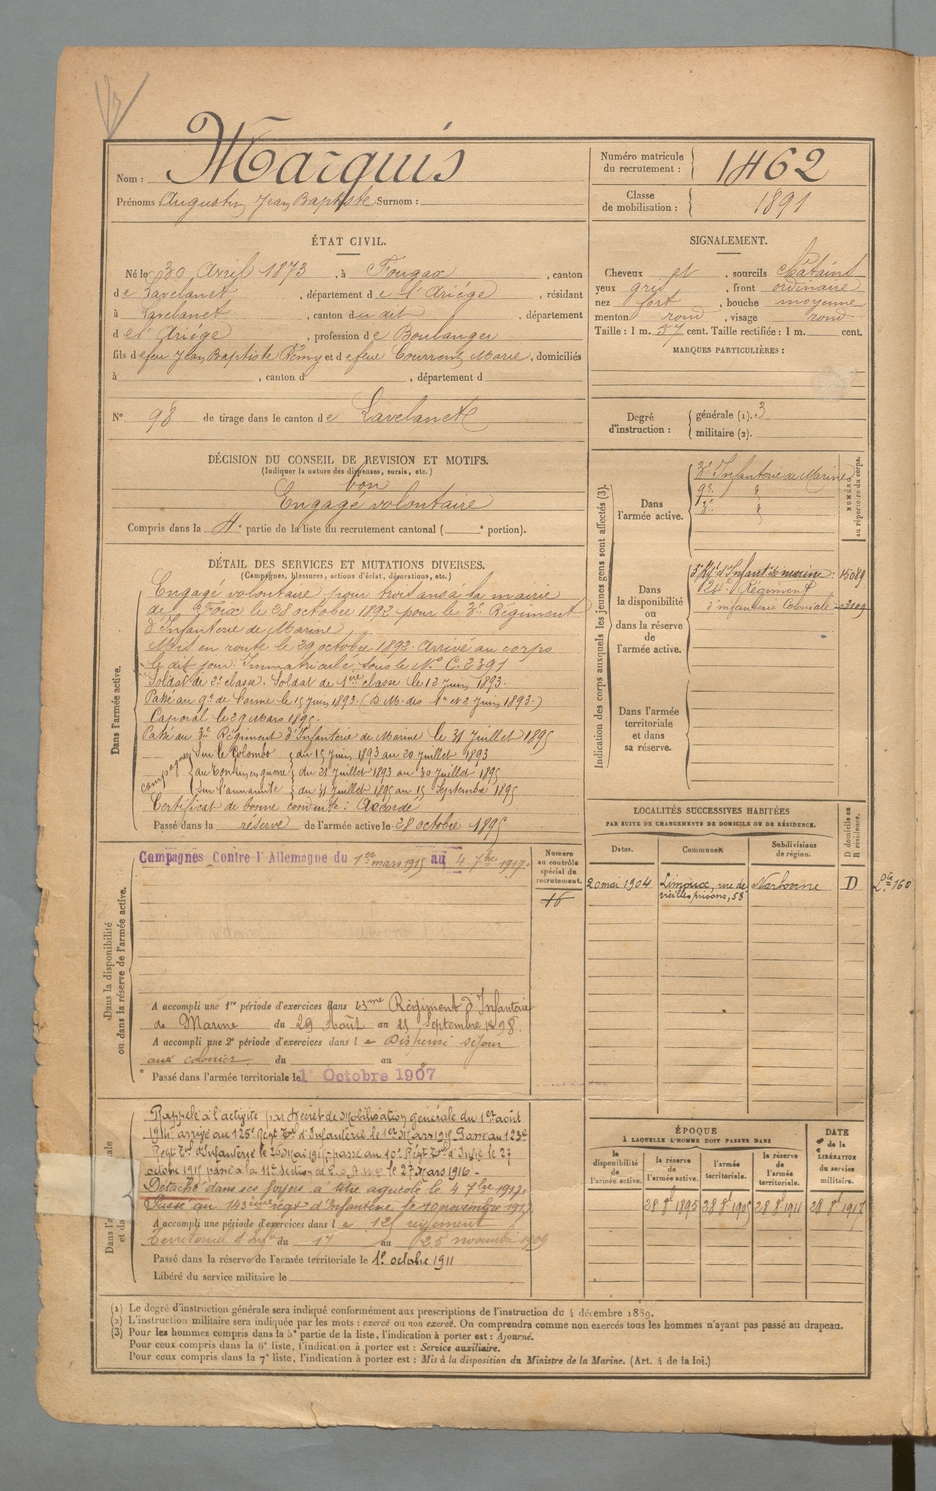 Nom : Marquis
Prénoms Augustin Jean Baptiste Surnom :
Numéro matricule du recrutement : 1462
Classe de mobilisation : 1891
ÉTAT CIVIL.
Né le 30 Avril 1873, à Fougax, canton
de Lavelanet, département de l'Ariége, résidant
à Lavelanet, canton du dit, département
de l'Ariége, profession de Boulanger
fils de feu Jean Baptiste Rémy et de feue Courrent Marie, domiciliés
à , canton d , département d
N° 98 de tirage dans le canton de Lavelanet
SIGNALEMENT.
Cheveux et, sourcils châtains
yeux gris, front ordinaire
nez fort, bouche moyenne
menton rond, visage rond
Taille : 1 m. 57 cent. Taille rectifiée : 1 m. cent.
MARQUES PARTICULIÈRES :
Degré d'instruction : générale (1). 3
militaire (2).
DÉCISION DU CONSEIL DE REVISION ET MOTIFS.
(Indiquer la nature des dispenses, sursis, etc.)
bon
Engagé volontaire
Compris dans la 4e partie de la liste du recrutement cantonal ( e portion).
DÉTAIL DES SERVICES ET MUTATIONS DIVERSES.
(Campagnes, blessures, actions d'éclat, décorations, etc.)
Dans l'armée active.
Engagé volontaire pour trois ans à la mairie
de Foix le 28 octobre 1892 pour le 3e Régiment
d'Infanterie de Marine
Mis en route le 29 octobre 1892. Arrivé au corps
le dit jour Immatriculé sous le No C. 2391
Soldat de 2e classe. Soldat de 1ère classe le 12 Juin 1893.
Passé au 9e de l'arme le 15 Juin 1893. (D.M. des 1er et 2 Juin 1893.)
Caporal le 29 Mars 1895.
Passé au 3e Régiment d'Infanterie de Marine le 31 Juillet 1895
Campagnes
Sur le Colombo du 15 Juin 1893 au 20 Juillet 1893
au Tonkin en guerre du 21 Juillet 1893 au 30 Juillet 1895
Sur l'annamite du 31 Juillet 1895 au 15 Septembre 1895
Certificat de bonne conduite : Accordé
Passé dans la réserve de l'armée active le 28 octobre 1895
Indication des corps auxquels les jeunes gens sont affectés (3).
NUMÉRO au répertoire du corps.
Dans l'armée active.
3e Infanterie de Marine
9e "
3e "
Dans la disponibilité ou dans la réserve de l'armée active.
3e Rgt d'Infant de marine 15089
24e Régiment
d'infanterie Coloniale
Dans l'armée territoriale et dans sa réserve.
LOCALITÉS SUCCESSIVES HABITÉES
PAR SUITE DE CHANGEMENTS DE DOMICILE OU DE RÉSIDENCE.
Dates. Communes. Subdivisions de région. D domicile ou R résidence.
20 mai 1904 Limoux, rue des vieilles prisons, 58 Narbonne D
Dans la disponibilité ou dans la réserve de l'armée active.
Numéro au contrôle spécial du recrutement.
16
Campagnes Contre l'Allemagne du 1er mars 1915 au 4 7bre 1917.
A accompli une 1re période d'exercices dans 23me Régiment d'Infanterie
de Marine du 29 Août au 25 Septembre 1898.
A accompli une 2e période d'exercices dans le Dispensé séjour
aux colonies du au
Passé dans l'armée territoriale le 1er Octobre 1907
Rappelé à l'activité par Décret de Mobilisation générale du 1er août
1914 arrivé au 125e Regt Tal d'Infanterie le 1er Mars 1915 Passé au 123e
Regt Tal d'Infanterie le 26 Mai 1915. passé au 10e Régt Tal d'Infie le 27
octobre 1915 passé à la 11e Section de le 27 Mars 1916 -
Détaché dans ses foyers à titre agricole le 4 7bre 1917.
Passé au 143ème régt d'Infanterie le 10 novembre 1917
A accompli une période d'exercices dans le 12e régiment
Territorial d'Infie du 17 au 25 novembre 1909
Passé dans la réserve de l'armée territoriale le 1er octobre 1911
Libéré du service militaire le
ÉPOQUE
À LAQUELLE L'HOMME DOIT PASSER DANS
DATE de la LIBÉRATION du service militaire.
la disponibilité de l'armée active. la réserve de l'armée active. l'armée territoriale. la réserve de l'armée territoriale.
28 8e 1895 28 8e 1905 28 8e 1911 28 8e 1917
(1) Le degré d'instruction générale sera indiqué conformément aux prescriptions de l'instruction du 4 décembre 1889.
(2) L'instruction militaire sera indiquée par les mots : exercé ou non exercé. On comprendra comme non exercés tous les hommes n'ayant pas passé au drapeau.
(3) Pour les hommes compris dans la 5e partie de la liste, l'indication à porter est : Ajourné.
Pour ceux compris dans la 6e liste, l'indication à porter est : Service auxiliaire.
Pour ceux compris dans la 7e liste, l'indication à porter est : Mis à la disposition du Ministre de la Marine. (Art. 4 de la loi.)